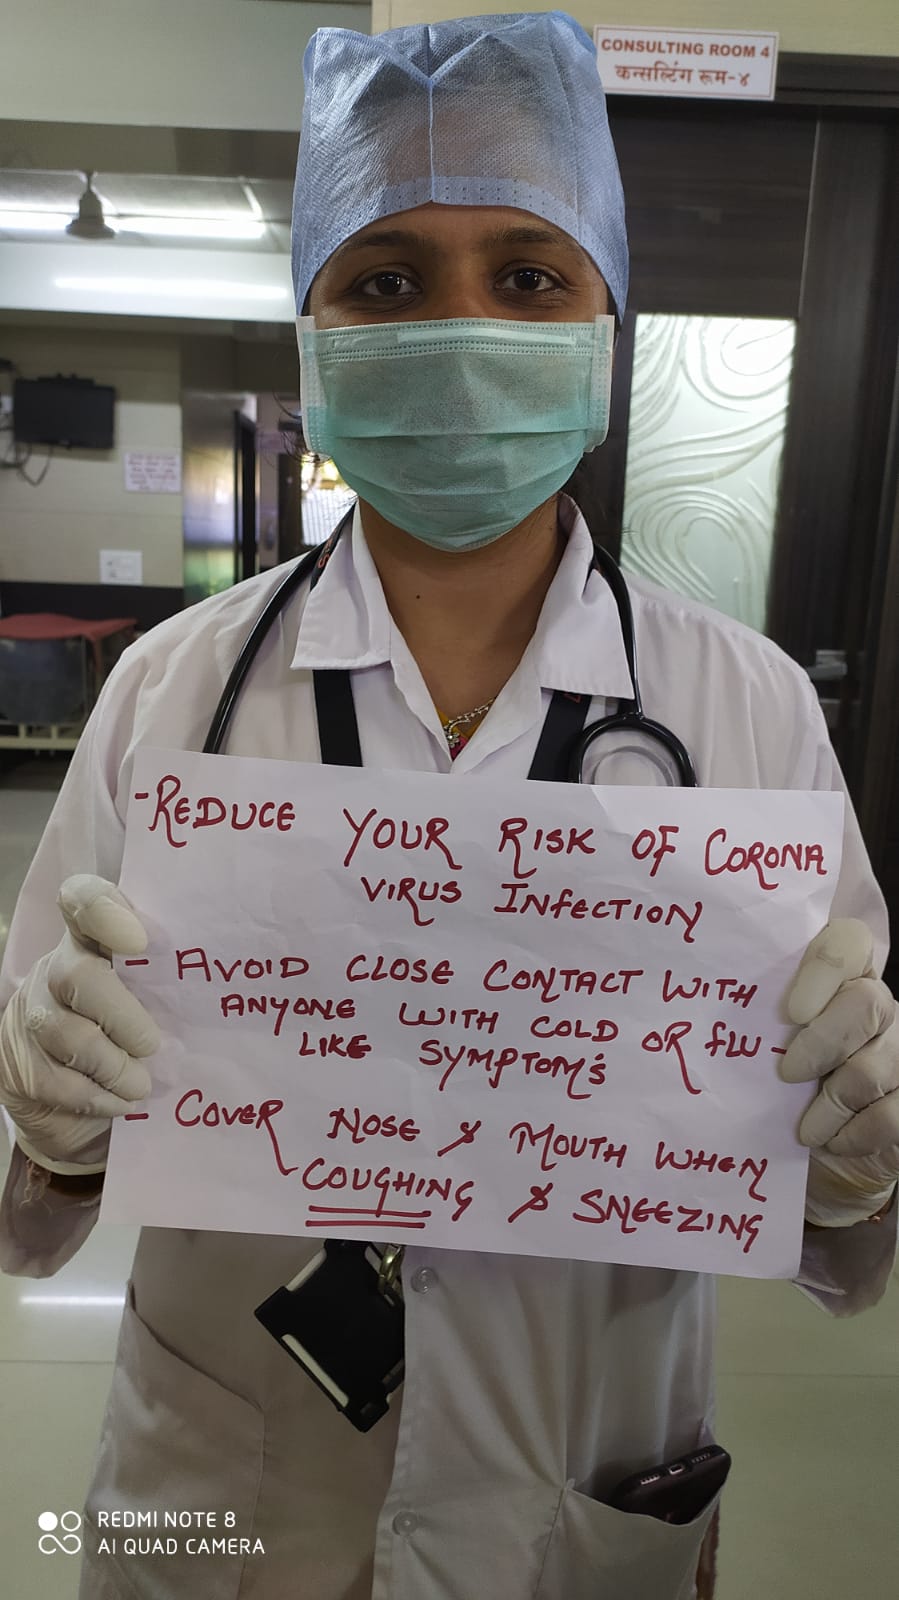 CONSULTING ROOM 4
कन्सल्टिंग रूम-४
- REDUCE YOUR RISK OF CORONA
VIRUS INFECTION
- AVOID CLOSE CONTACT WITH
ANYONE WITH COLD OR FLU -
LIKE SYMPTOM'S
- COVER NOSE & MOUTH WHEN
COUGHING & SNEEZING
REDMI NOTE 8
AI QUAD CAMERA